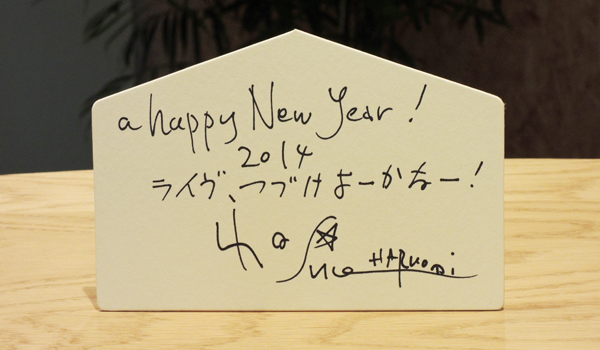 a happy New Year !
2014
ライヴ、つづけよーかなー!
HARUOMi